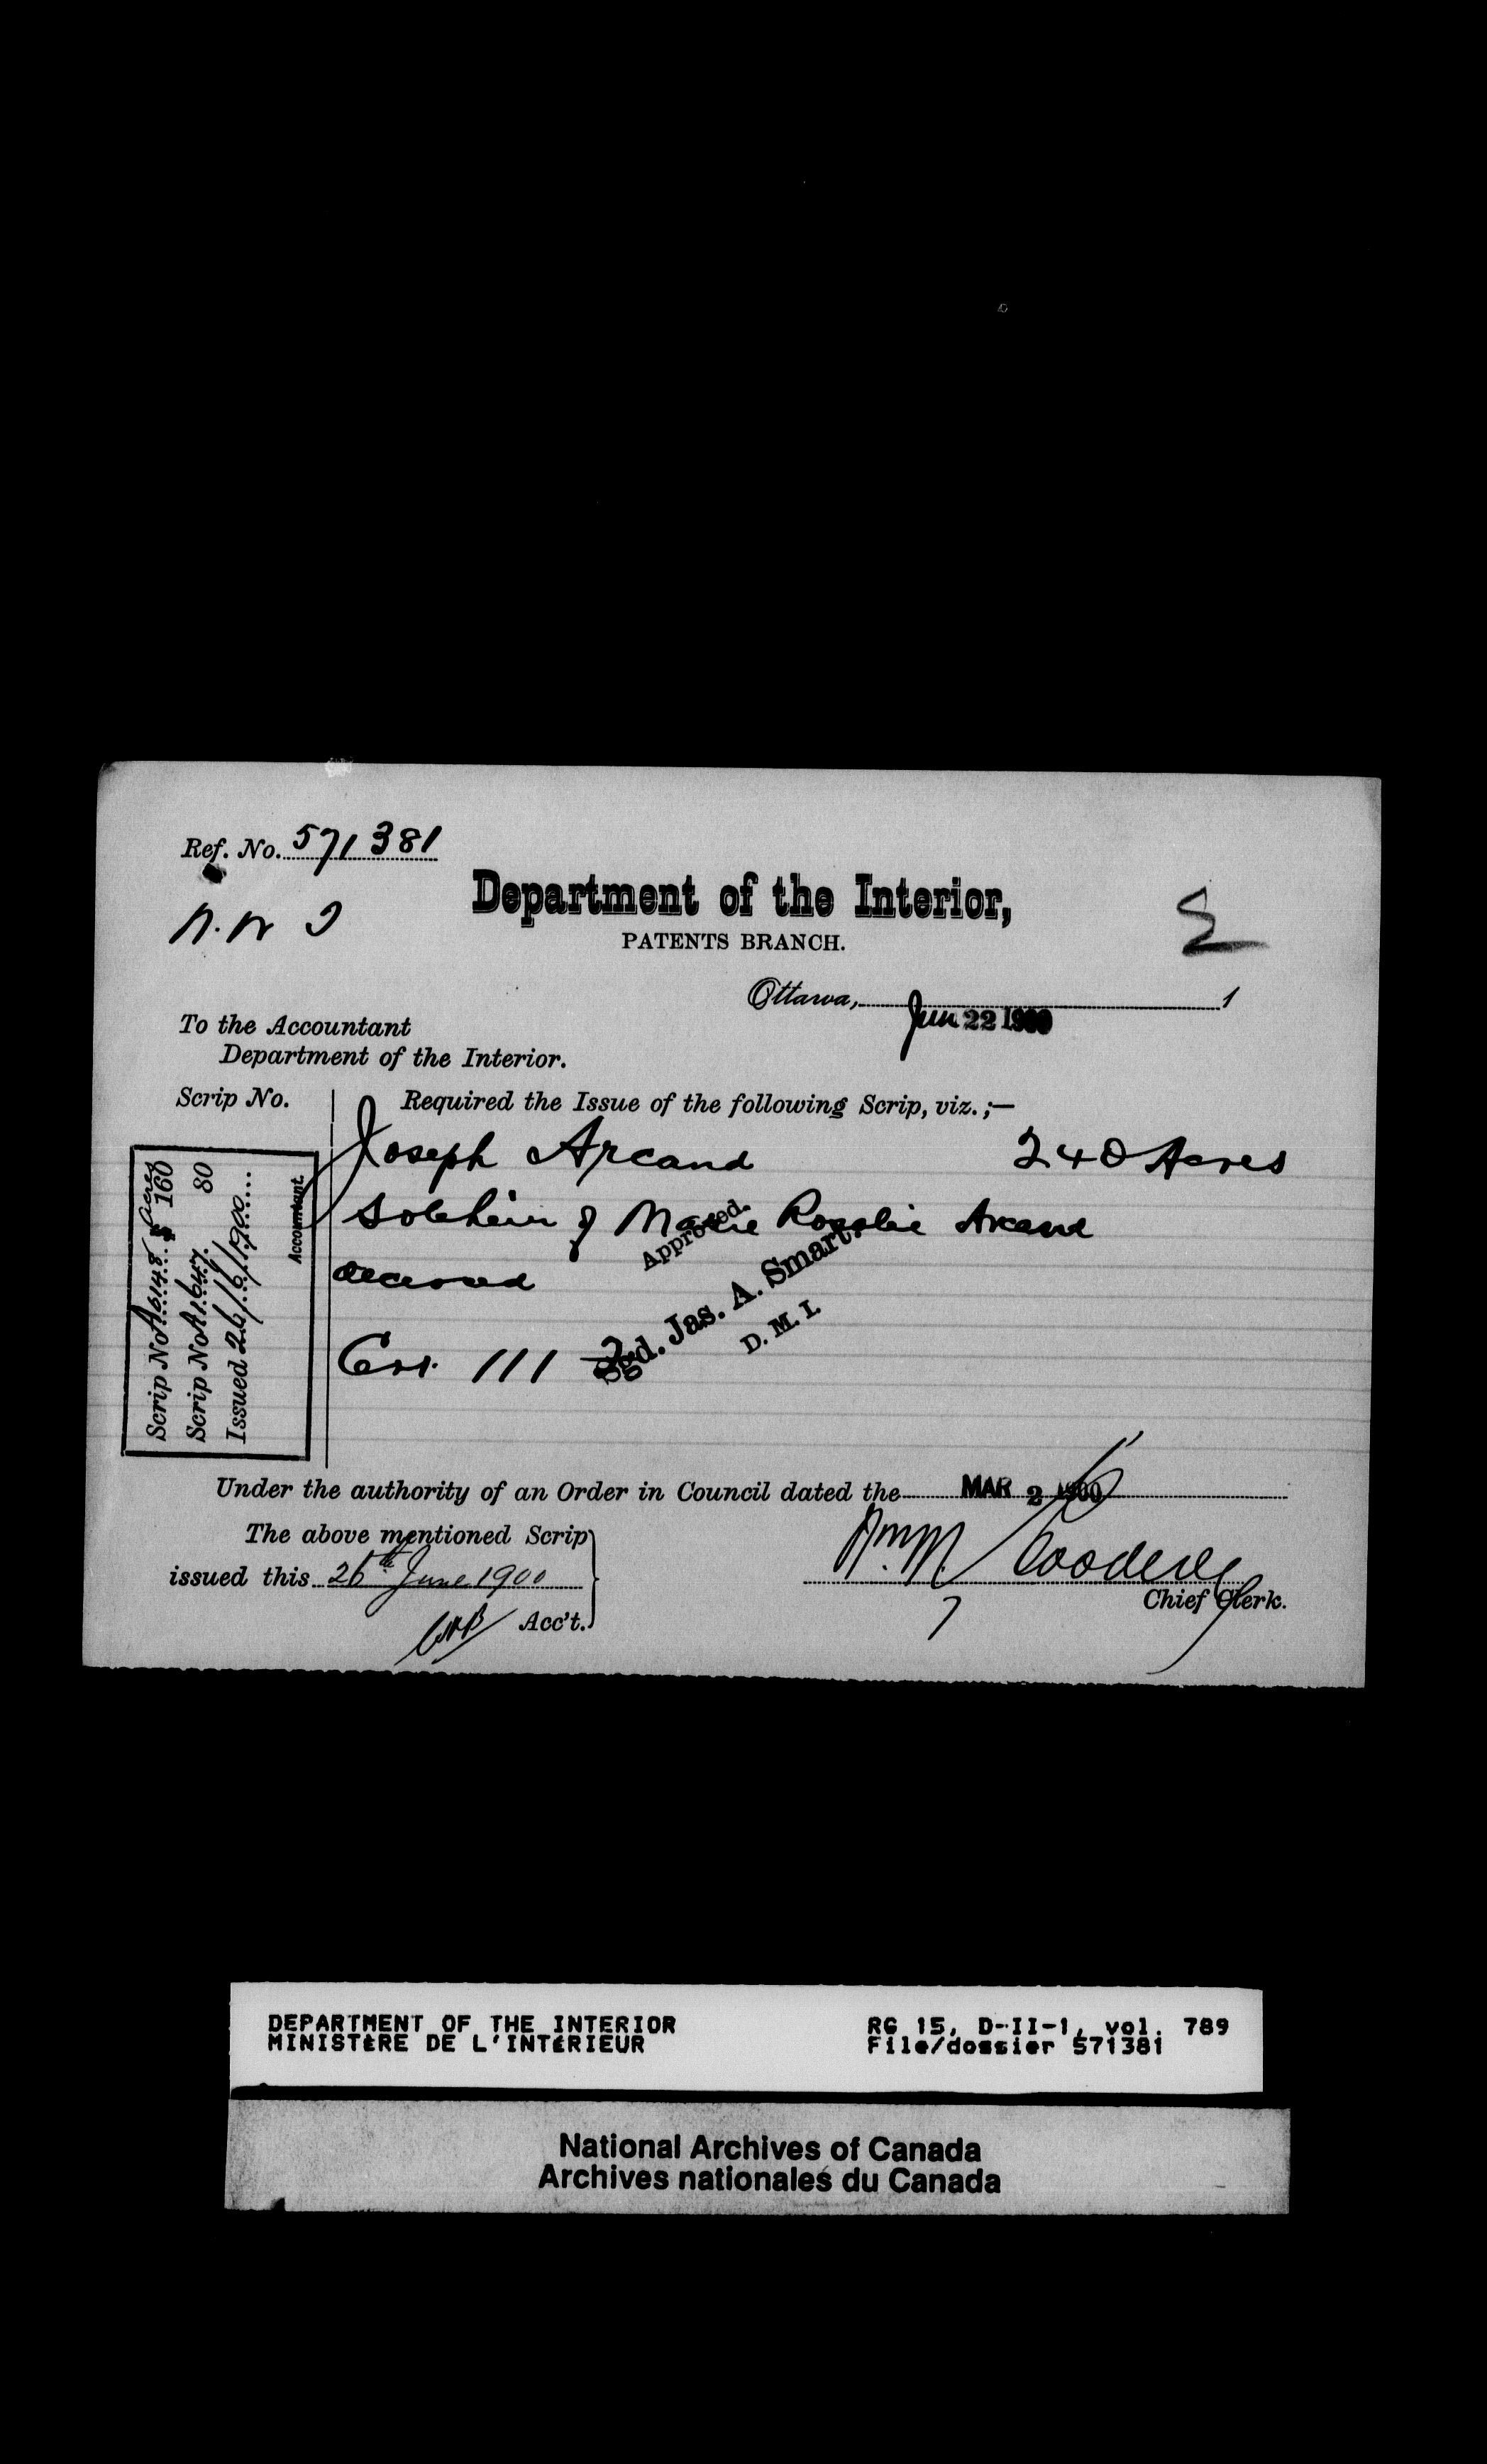 Ref. No. 571381
Department of the Interior,
PATENTS BRANCH.
Ottawa, Jun 22 1900 1
To the Accountant
Department of the Interior.
Scrip No.
Required the Issue of the following Scrip, viz. ;—
Joseph Arcand 240 Acres
Sole heir of Marie Rosalie Arcand
deceased
111
Approved.
Sgd. Jas. A. Smart,
D. M. I.
Scrip No A6148 $ Acres 160
Scrip No A1647 80
Issued 26/6/1900
Accountant.
Under the authority of an Order in Council dated the MAR 2 1900
The above mentioned Scrip
issued this 26th June 1900
Acc't.
Chief Clerk.
DEPARTMENT OF THE INTERIOR
MINISTÈRE DE L'INTÉRIEUR
RG 15, D-II-1, vol. 789
File/dossier 571381
National Archives of Canada
Archives nationales du Canada